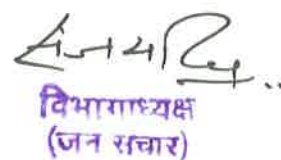 विभागाध्यक्ष
(जन सचार)